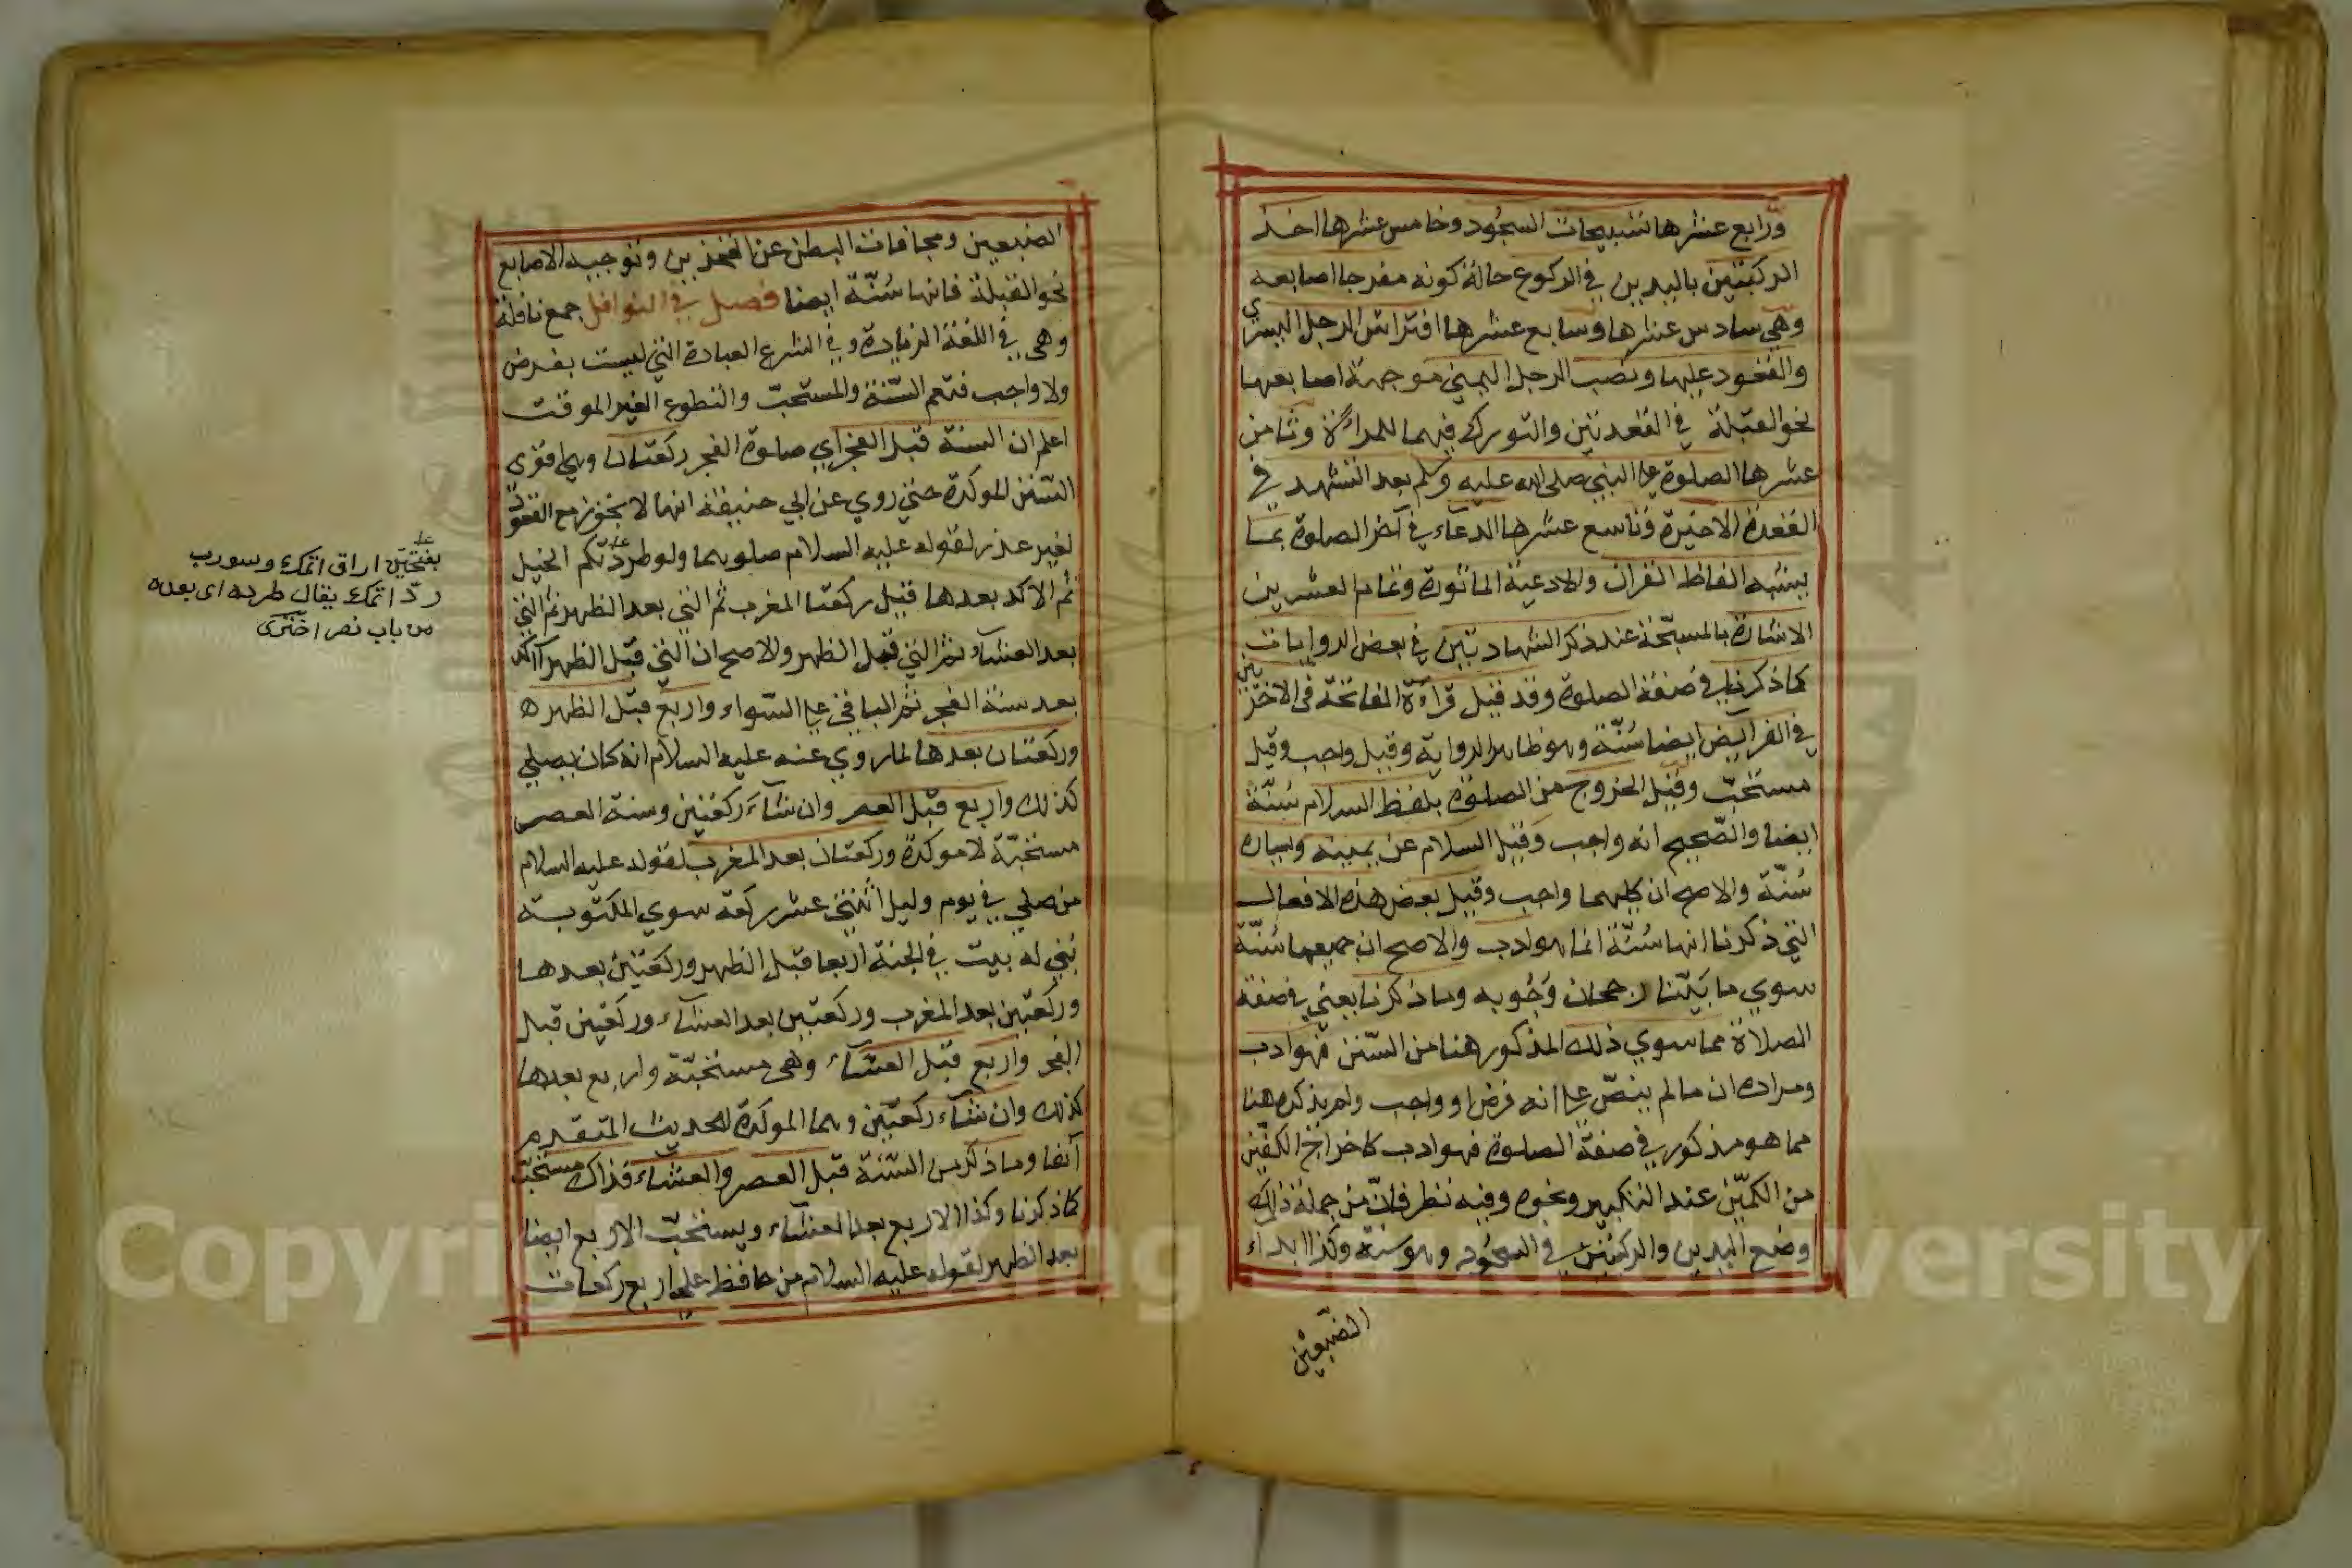 ورابع عشرها تسبيحات السجود وخامس عشرها اخذ
الركبتين باليدين في الركوع حالة كونه مفرجا اصابعه
وهي سادس عشرها وسابع عشرها افتراش الرجل اليسري
والقعود عليها ونصب الرجل اليمني موجهة اصابعها
نحو القبلة في القعدتين والتورك فيهما للمراءة وثامن
عشرها الصلوة علي النبي صلي الله عليه وسلم بعد التشهد في
القعدة الاخيرة وتاسع عشرها الدعاء في آخر الصلوة بما
يشبه الفاظ القران والادعية الماثورة وتمام العشرين
الاشارة بالمسبحة عند ذكر الشهادتين في بعض الروايات
كما ذكرنا في صفة الصلوة وقد قيل قراءة الفاتحة في الاخريين
في الفرايض ايضا سُنّة وهو ظاهر الرواية وقيل واجب وقيل
مستحبّ وقيل الخروج من الصلوة بلفظ السلام سُنّة
ايضا والصّحيح انه واجب وقيل السلام عن يمينه ويساره
سُنّة والاصح ان كليهما واجب وقيل بعض هذه الافعال
التي ذكرنا انها سُنّة انما هو ادب والاصح ان جميعها سُنّة
سوي ما بَيّنّا رجحان وُجُوبه وما ذكرنا يعني في صفة
الصلاة مما سوي ذلك المذكور هنا من السّنن فهو ادب
ومراده ان ما لم ينصّ علي انه فرض او واجب ولم يذكره هنا
مما هو مذكور في صفة الصلوة فهو ادب كاخراج الكفّين
من الكمّين عند التكبير ونحوه وفيه نظر فانّ من جملة ذلك
وضع اليدين والركبتين في السجُود وهو سنة وكذا ابداء
الضبعين
الضبعين ومجافات البطن عن الفخذين وتوجيه الاصابع
نحو القبلة فانها سُنّة ايضا فصل في النوافل جمع نافلة
وهي في اللغة الزيادة وفي الشرع العبادة التي ليست بفرض
ولا واجب فتعم السّنة والمستحبّ والتطوع الغير الموقت
اعلم ان السنة قبل الفجر اي صلوة الفجر ركعتان وهي اقوي
السّنن الموكدة حتي روي عن ابي حنيفة انها لا تجوز مع القعود
لغير عذر لقوله عليه السلام صلوهما ولو طردتكم الخيل
ثم الاكد بعدها قيل ركعتا المغرب ثم التي بعد الظهر ثم التي
بعد العشاء ثم التي قبل الظهر والاصح ان التي قبل الظهر آكد
بعد سنة الفجر ثم الباقي علي السّواء واربع قبل الظهر
وركعتان بعدها لما روي عنه عليه السلام انه كان يصلي
كذلك واربع قبل العصر وان شاء ركعتين وسنة العصر
مستحبّة لا موكدة وركعتان بعد المغرب لقوله عليه السلام
من صلي في يوم وليل اثنتي عشر ركعة سوي المكتوبة
بُني له بيت في الجنة اربعا قبل الظهر وركعتين بعدها
وركعتين بعد المغرب وركعتين بعد العشاء وركعتين قبل
الفجر واربع قبل العشاء وهي مستحبّة واربع بعدها
كذلك وان شاء ركعتين وهما الموكدة للحديث المتقدم
آنفا وما ذكر من السّنة قبل العصر والعشاء فذاك مستحبّ
كما ذكرنا وكذا الاربع بعد العشاء ويستحبّ الاربع ايضا
بعد الظهر لقوله عليه السلام من حافظ علي اربع ركعات
بفتحتين اراق اتمك وسورب
ردّ اتمك يقال طرده اي بعده
من باب نصر اخترى
Copyright © King Saud University